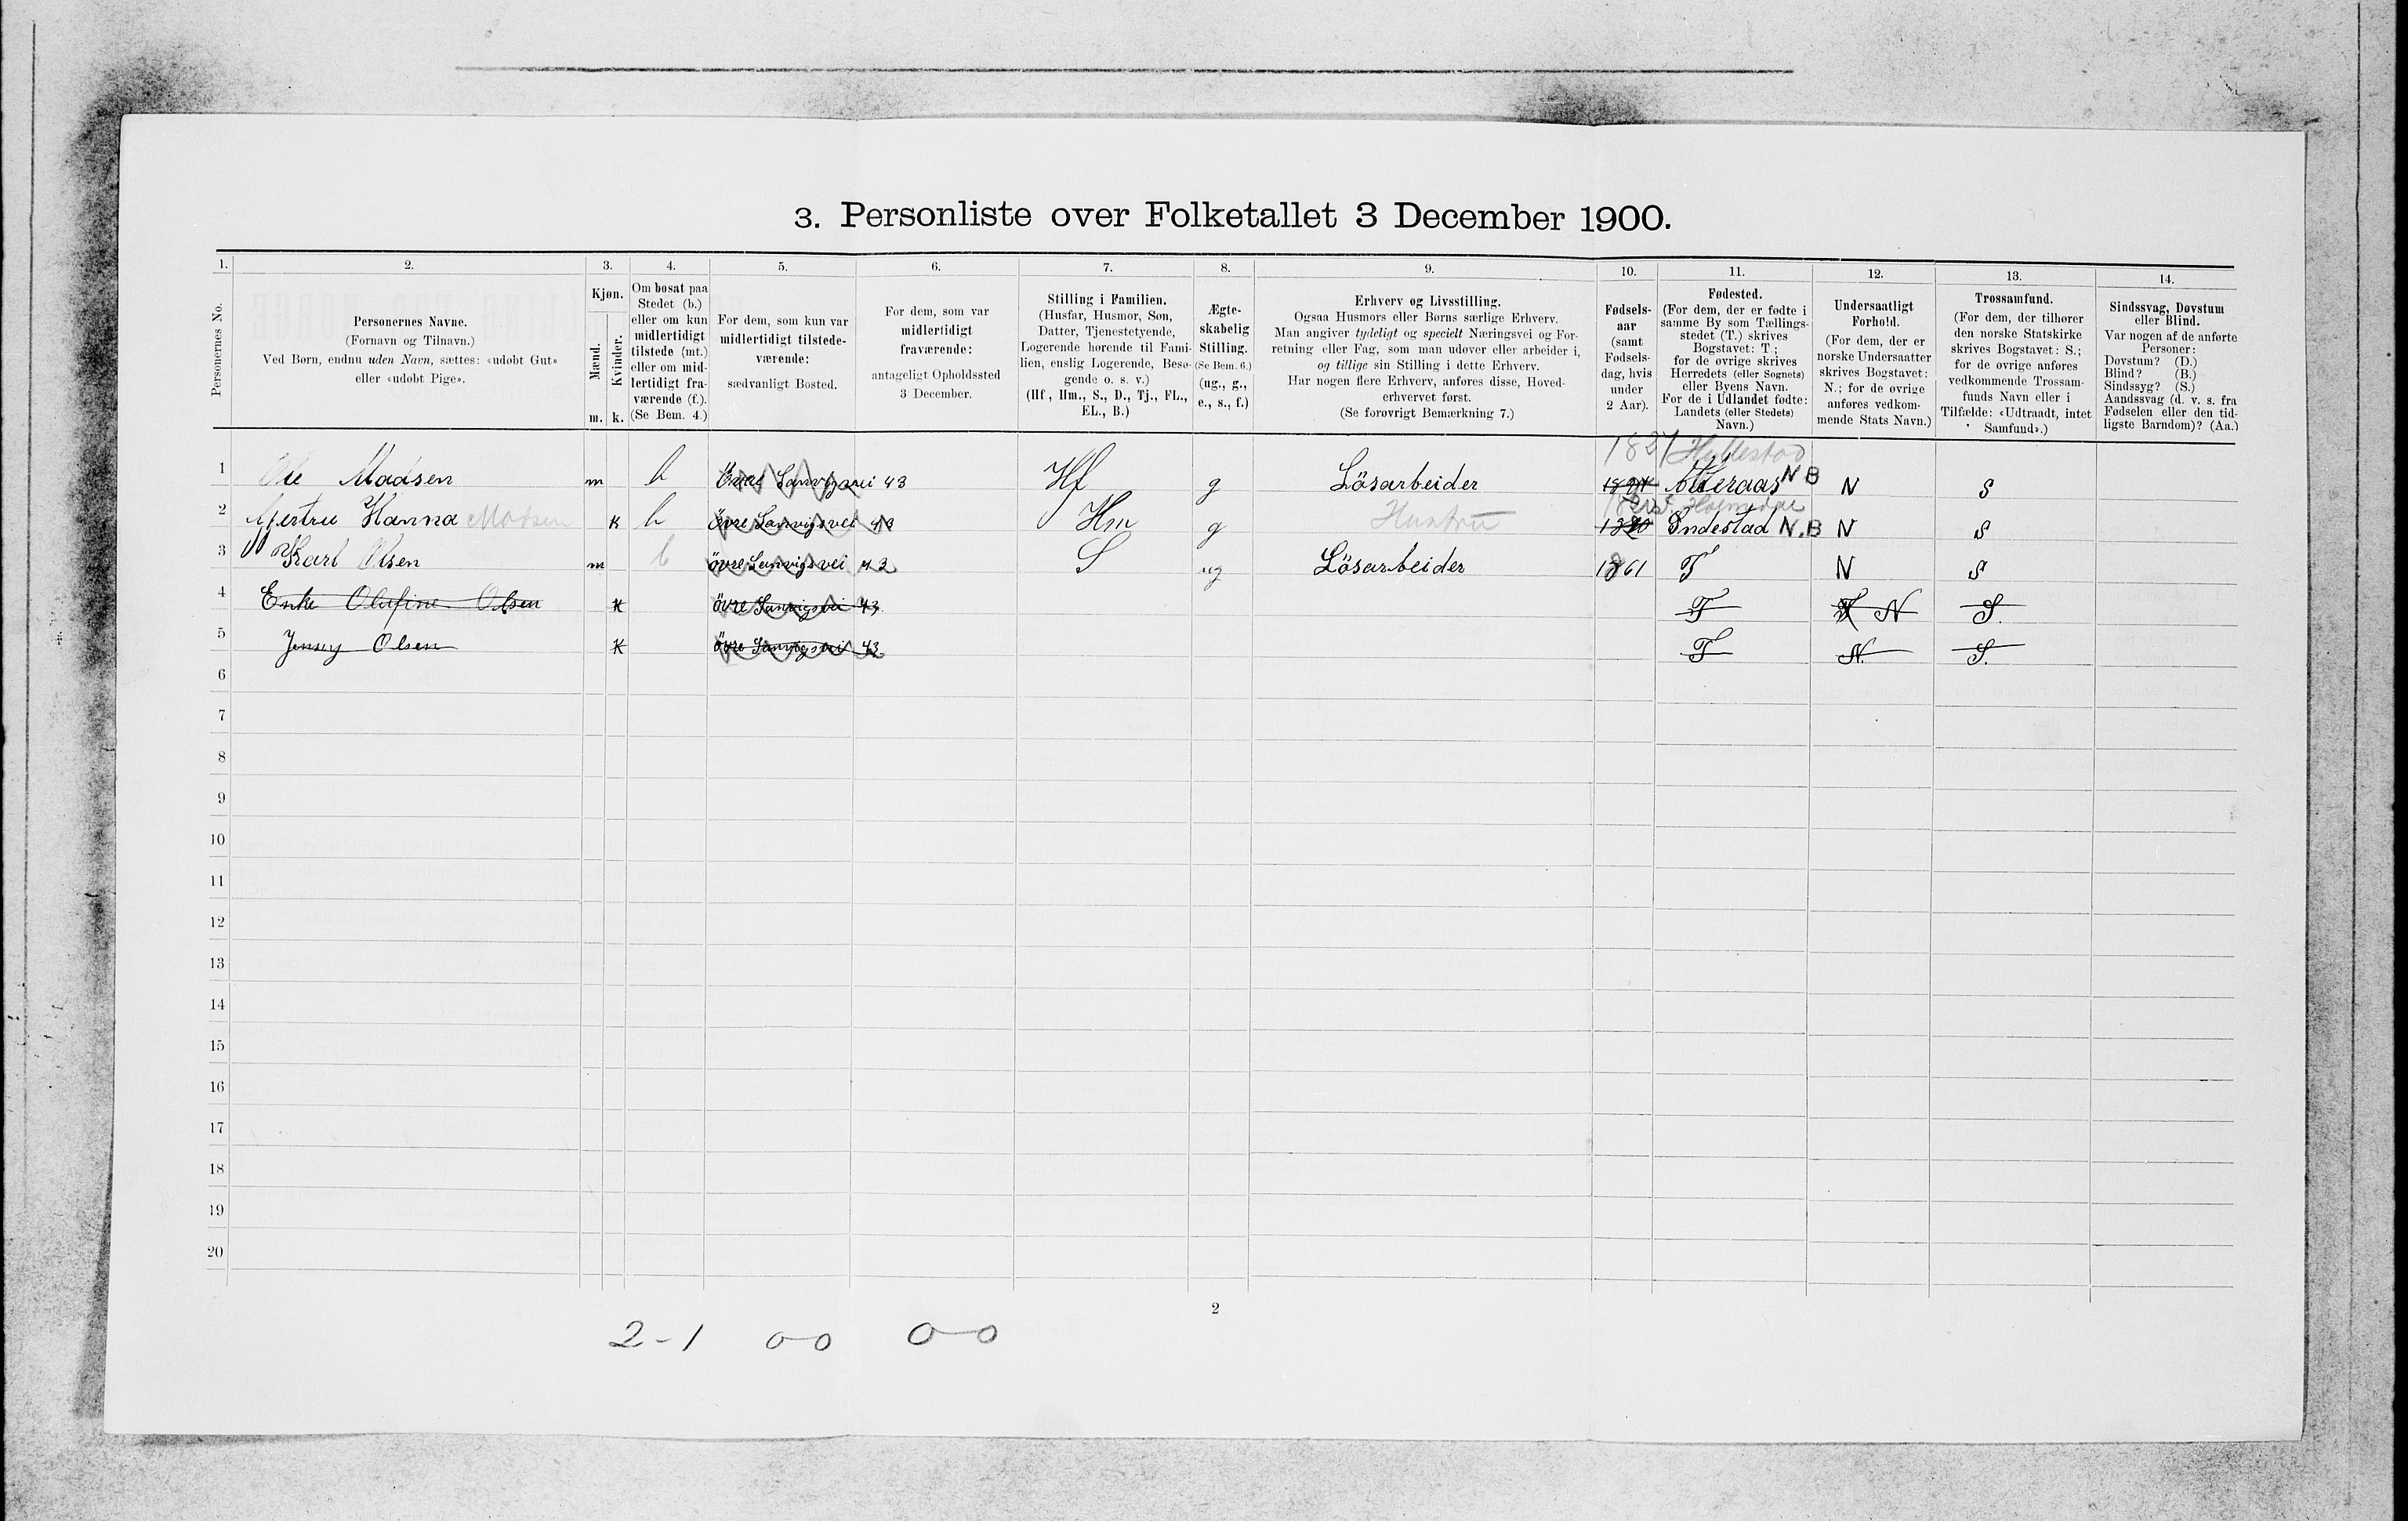 3. Personliste over Folketallet 3 December 1900.
1. 2. 3. 4. 5. 6. 7. 8. 9. 10. 11. 12. 13. 14.
Personernes No.
Personernes Navne.
(Fornavn og Tilnavn.)
Ved Børn, endnu uden Navn, sættes: «udøbt Gut»
eller «udøbt Pige».
Kjøn.
Mænd.
Kvinder.
m. k.
Om bosat paa
Stedet (b.)
eller om kun
midlertidigt
tilstede (mt.)
eller om mid-
lertidigt fra-
værende (f.).
(Se Bem. 4.)
For dem, som kun var
midlertidigt tilstede-
værende:
sædvanligt Bosted.
For dem, som var
midlertidigt
fraværende:
antageligt Opholdssted
3 December.
Stilling i Familien.
(Husfar, Husmor, Søn,
Datter, Tjenestetyende,
Logerende hørende til Fami-
lien, enslig Logerende, Besø-
gende o. s. v.)
(Hf., Hm., S., D., Tj., FL.,
EL., B.)
Ægte-
skabelig
Stilling.
(Se Bem. 6.)
(ug., g.,
e., s., f.)
Erhverv og Livsstilling.
Ogsaa Husmors eller Børns særlige Erhverv.
Man angiver tydeligt og specielt Næringsvei og For-
retning eller Fag, som man udøver eller arbeider i,
og tillige sin Stilling i dette Erhverv.
Har nogen flere Erhverv, anføres disse, Hoved-
erhvervet først.
(Se forøvrigt Bemærkning 7.)
Fødsels-
aar
(samt
Fødsels-
dag, hvis
under
2 Aar).
Fødested.
(For dem, der er fødte i
samme By som Tællings-
stedet (T.) skrives
Bogstavet: T.;
for de øvrige skrives
Herredets (eller Sognets)
eller Byens Navn.
For de i Udlandet fødte:
Landets (eller Stedets)
Navn.)
Undersaatligt
Forhold.
(For dem, der er
norske Undersaatter
skrives Bogstavet:
N.; for de øvrige
anføres vedkom-
mende Stats Navn.)
Trossamfund.
(For dem, der tilhører
den norske Statskirke
skrives Bogstavet: S.;
for de øvrige anføres
vedkommende Trossam-
funds Navn eller i
Tilfælde: «Udtraadt, intet
Samfund».)
Sindssvag, Døvstum
eller Blind.
Var nogen af de anførte
Personer:
Døvstum? (D.)
Blind? (B.)
Sindssyg? (S.)
Aandssvag (d. v. s. fra
Fødselen eller den tid-
ligste Barndom)? (Aa.)
1 Ole Madsen m b 43 Hf g Lösarbeider N B N S
2 Gjertru Hanna Madsen k b övre Sanvigsvei 43 Hm g Hustru Indestad N.B N S
3 Karl Olsen m b övre Sanvigsvei 43 S ug Lösarbeider 1861 T N S
4 Enke Olufine Olsen K övre Sanvigsvei 43 T N S.
5 Jensey Olsen K övre Sanvigsvei 43 T N. S.
6
7
8
9
10
11
12
13
14
15
16
17
18
19
20
2
2-1 0-0 0-0